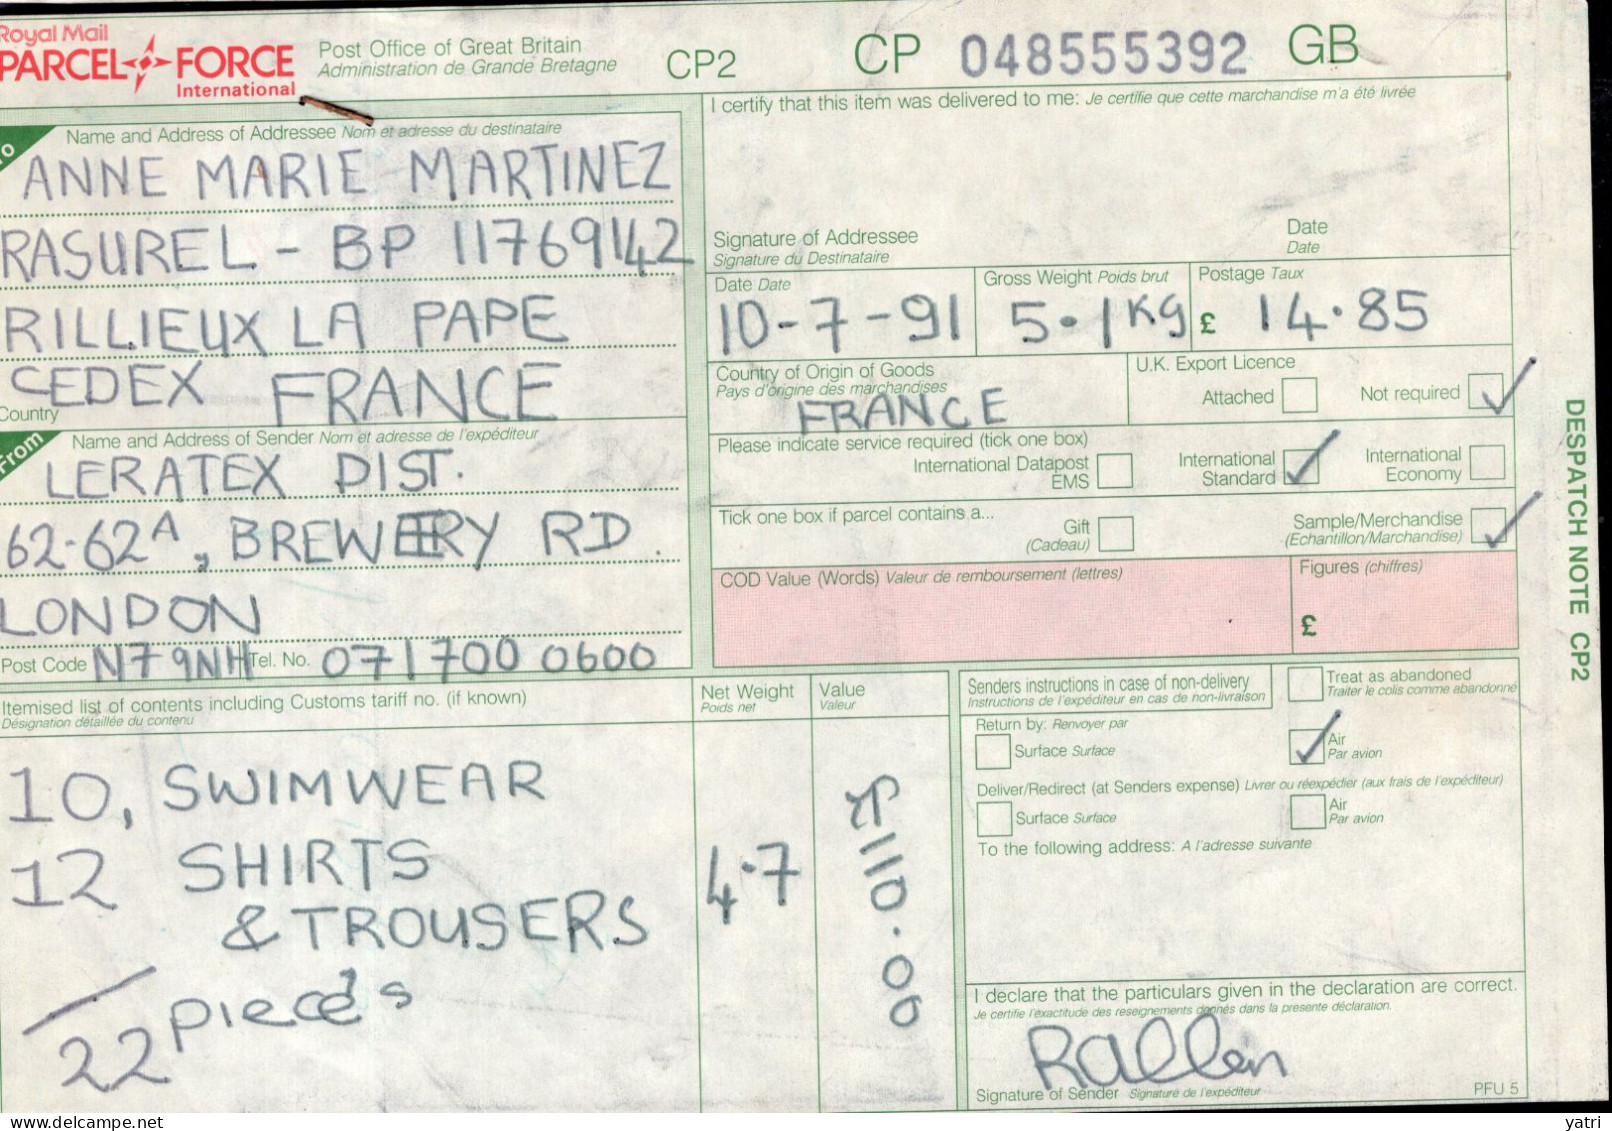 Royal Mail
PARCEL FORCE
International
Post Office of Great Britain
Administration de Grande Bretagne
CP2
CP 048555392 GB
To
Name and Address of Addressee Nom et adresse du destinataire
ANNE MARIE MARTINEZ
RASUREL - BP 11769142
RILLIEUX LA PAPE
CEDEX FRANCE
Country
From
Name and Address of Sender Nom et adresse de l'expéditeur
LERATEX DIST.
62-62A, BREWERY RD.
LONDON
Post Code N7 9NH Tel. No. 071 700 0600
I certify that this item was delivered to me: Je certifie que cette marchandise m'a été livrée
Signature of Addressee
Signature du Destinataire
Date
Date
Date Date
10-7-91
Gross Weight Poids brut
5.1Kg
Postage Taux
£ 14.85
Country of Origin of Goods
Pays d'origine des marchandises
FRANCE
U.K. Export Licence
Attached
Not required
Please indicate service required (tick one box)
International Datapost
EMS
International
Standard
International
Economy
Tick one box if parcel contains a...
Gift
(Cadeau)
Sample/Merchandise
(Echantillon/Marchandise)
COD Value (Words) Valeur de remboursement (lettres)
Figures (chiffres)
£
DESPATCH NOTE CP2
Itemised list of contents including Customs tariff no. (if known)
Désignation détaillée du contenu
Net Weight
Poids net
Value
Valeur
10, SWIMWEAR
12 SHIRTS
& TROUSERS
22 pieces
4.7
£110.00
Senders instructions in case of non-delivery
Instructions de l'expéditeur en cas de non-livraison
Treat as abandoned
Traiter le colis comme abandonné
Return by: Renvoyer par
Surface Surface
Air
Par avion
Deliver/Redirect (at Senders expense) Livrer ou réexpédier (aux frais de l'expéditeur)
Surface Surface
Air
Par avion
To the following address: A l'adresse suivante
I declare that the particulars given in the declaration are correct.
Je certifie l'exactitude des reseignements donnés dans la presente déclaration.
Signature of Sender Signature de l'expéditeur
PFU 5
delcampe.net
yatri